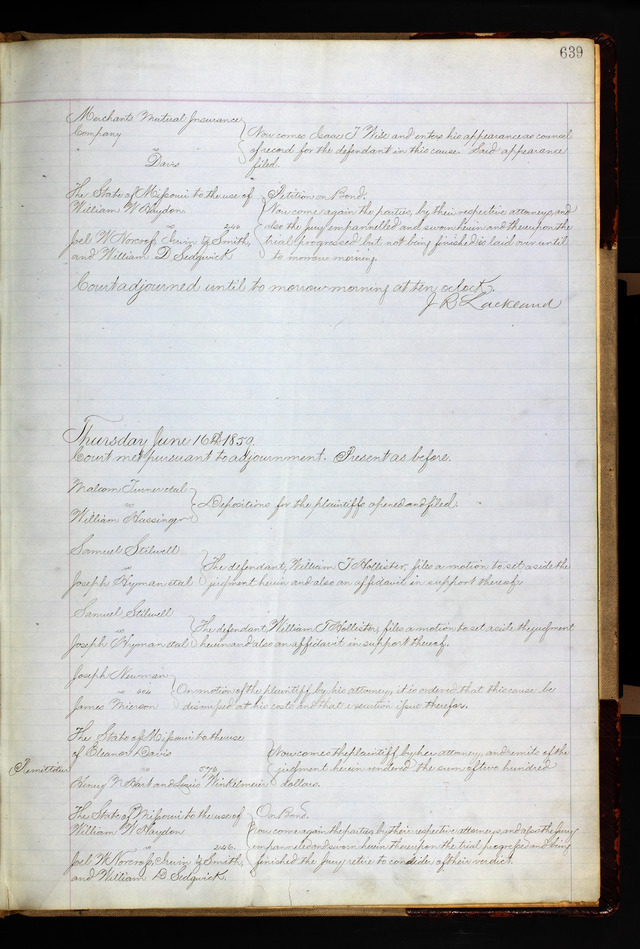 639
Merchants Mutual Insurance
Company
vs
Davis
Now comes Isaac T Wise and enters his appearance as counsel
of record for the defendant in this cause. Said appearance
filed.
The State of Missouri to the use of
William W Haydon
vs 246
Joel W Norcrop, Irwin Z Smith,
and William D Sedgwick
Petition on Bond.
Now come again the parties, by their respective attorneys, and
also the Jury empannelled and sworn herein and thereupon the
trial progressed but not being finished is laid over until
to morrow morning.
Court adjourned until to morrow morning at ten oclock.
J R Lackland
Thursday June 16th 1859.
Court met pursuant to adjournment. Present as before.
Malcom Turner et al
vs
William Hassinger
Depositions for the plaintiffs opened and filed.
Samuel Stilwell
vs
Joseph Hyman et al
The defendant, William T Hollister, files a motion to set aside the
judgment herein and also an affidavit in support thereof.
Samuel Stilwell
vs
Joseph Hyman et al
The defendant William T Hollister, files a motion to set aside the judgment
herein and also an affidavit in support thereof.
Joseph Newman
vs 604
James Mierson
On motion of the plaintiff by his attorney, it is ordered that this cause be
dismissed at his costs and that execution issue therefor.
The State of Missouri to the use
of Eleanor Davis
vs 570
Henry N Hart and Louis Winkelmeir
Remittitur
Now comes the plaintiff by her attorney, and remits of the
judgment herein rendered the sum of two hundred
dollars.
The State of Missouri to the use of
William W Haydon
vs 246.
Joel W Norcrop, Irwin Z Smith,
and William D Sedgwick.
On Bond.
Now come again the parties by their respective attorneys and also the Jury
empanneled and sworn herein thereupon the trial progressed and being
finished the Jury retire to consider of their verdict